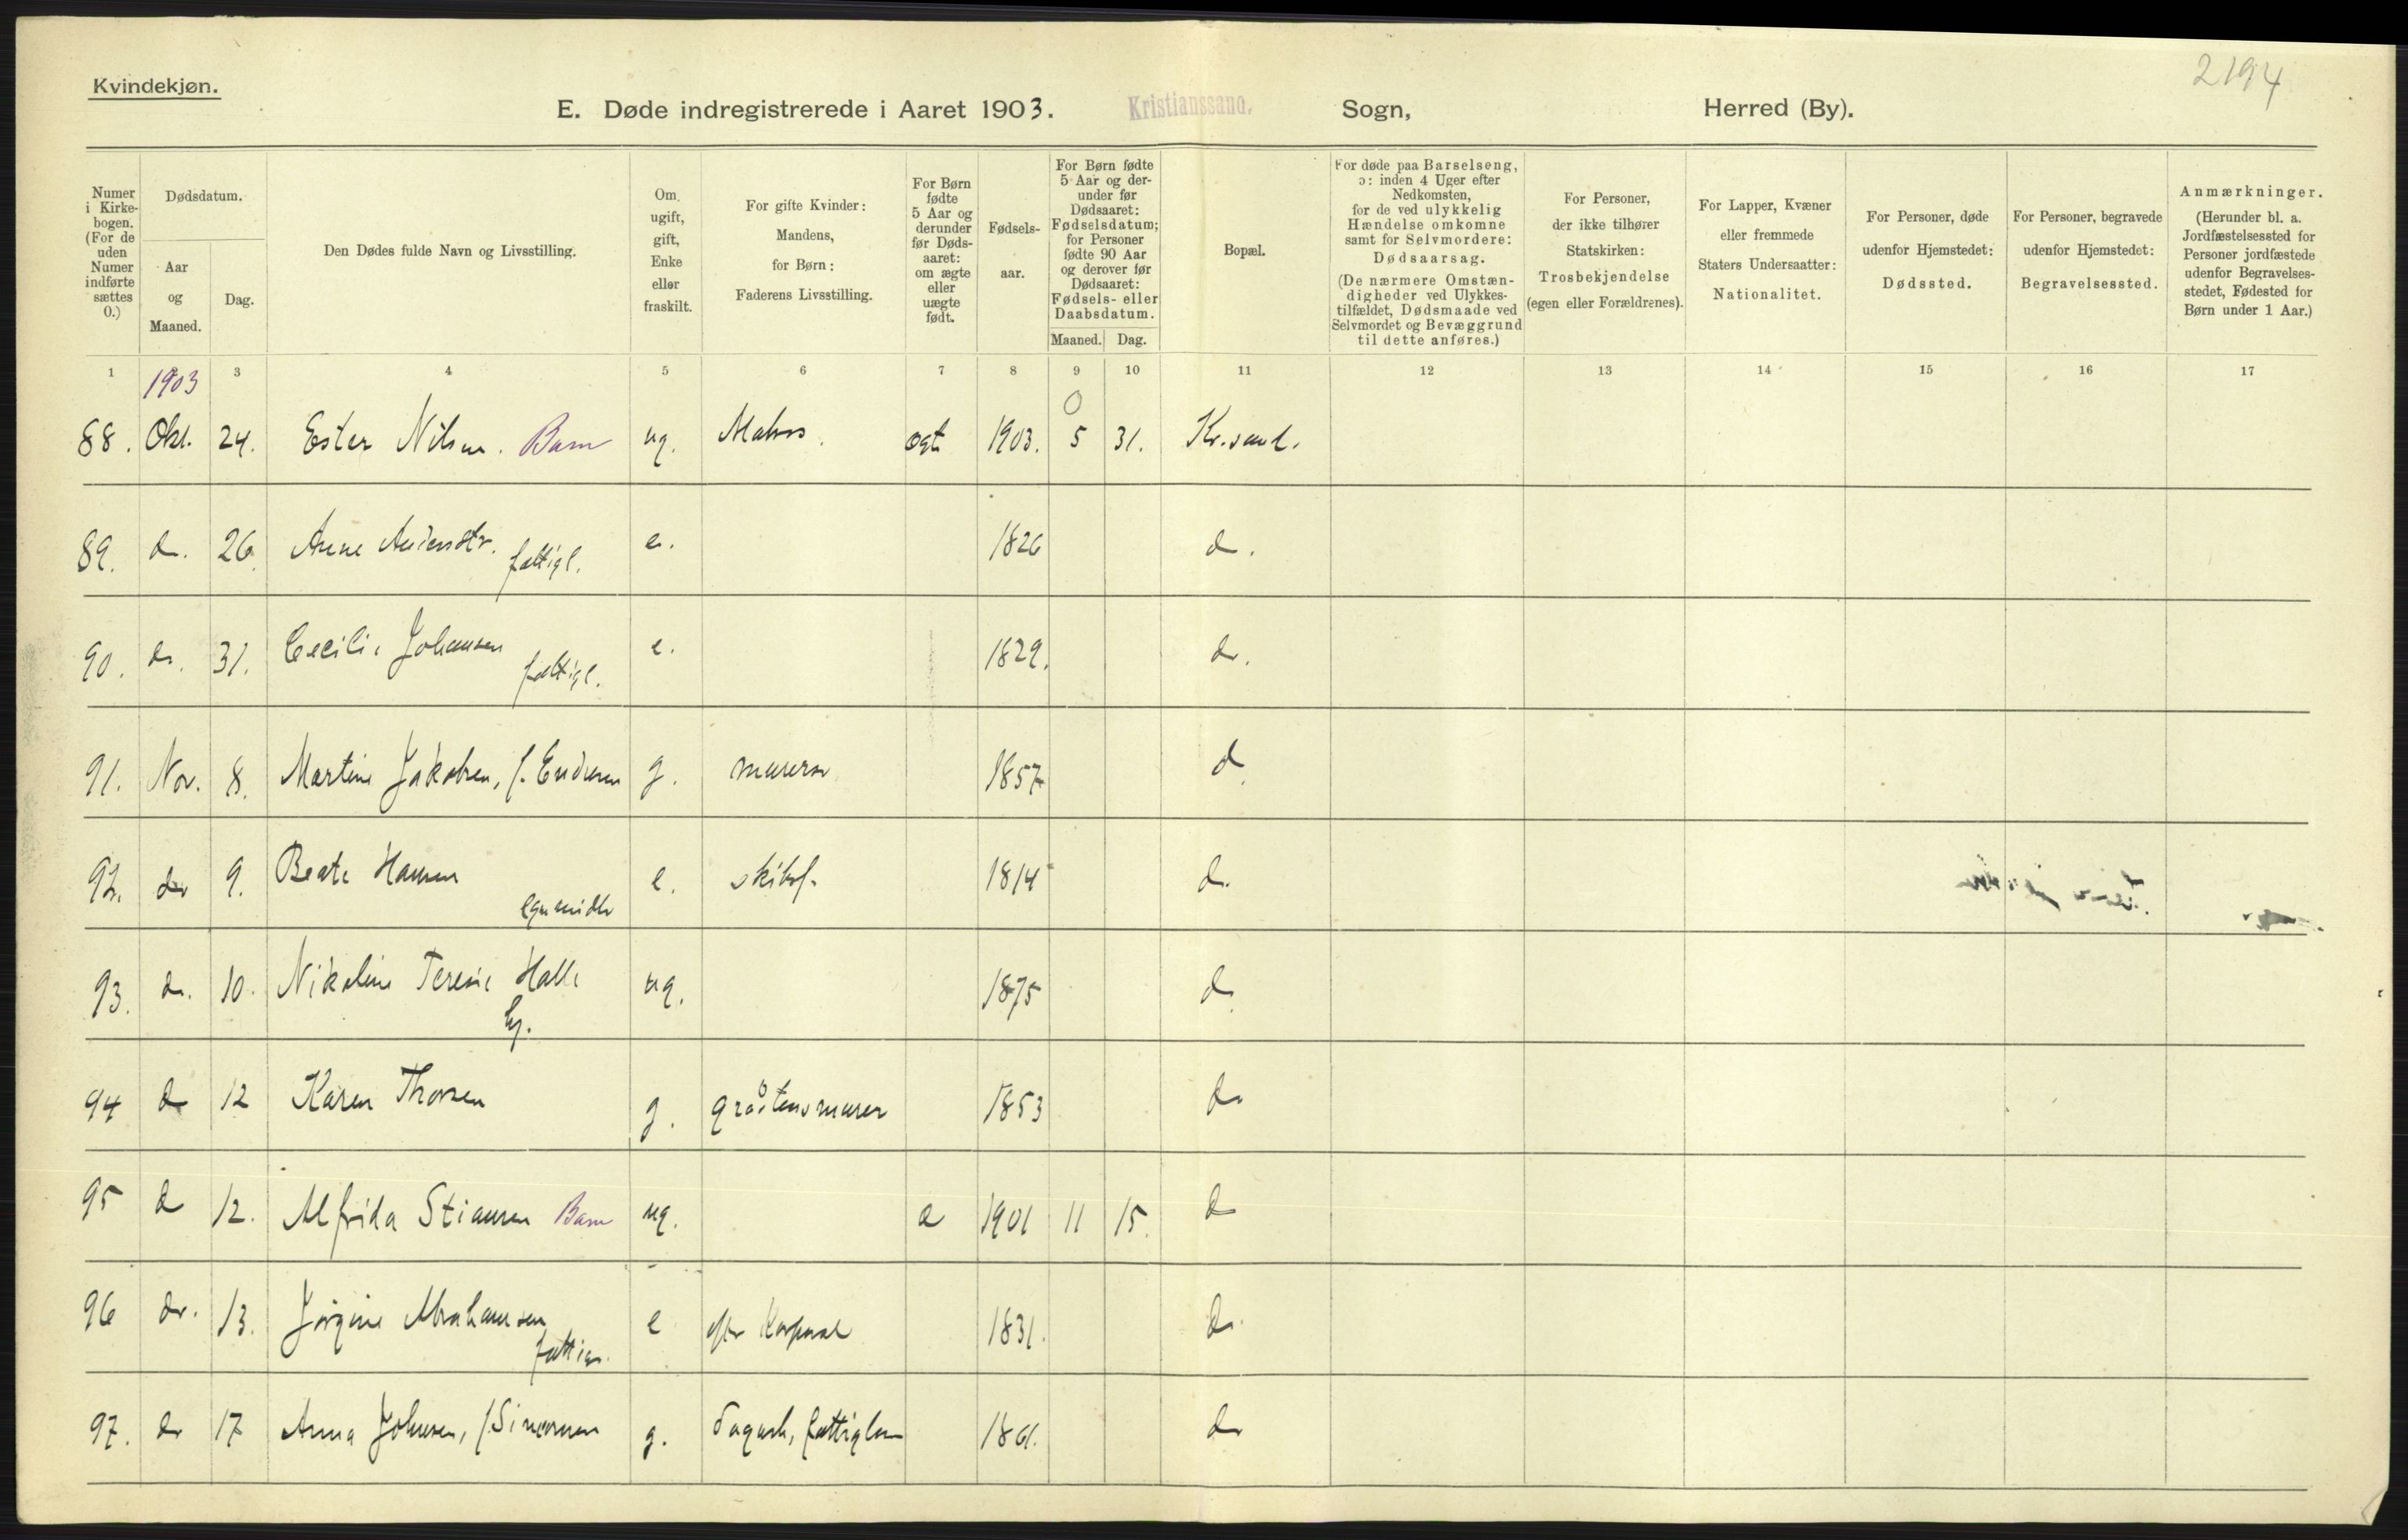 Kvindekjøn.
2194
E. Døde indregistrerede i Aaret 1903. Kristianssand. Sogn, Herred (By).
Numer i Kirke-bogen. (For de uden Numer indførte sættes 0.)
Dødsdatum.
Aar og Maaned.
Dag.
Den Dødes fulde Navn og Livsstilling.
Om ugift, gift, Enke eller fraskilt.
For gifte Kvinder: Mandens, for Børn: Faderens Livsstilling.
For Børn fødte 5 Aar og derunder før Døds-aaret: om ægte eller uægte født.
Fødsels-aar.
For Børn fødte 5 Aar og der-under før Dødsaaret: Fødselsdatum; for Personer fødte 90 Aar og derover før Dødsaaret: Fødsels- eller Daabsdatum.
Maaned. Dag.
Bopæl.
For døde paa Barselseng, ɔ: inden 4 Uger efter Nedkomsten, for de ved ulykkelig Hændelse omkomne samt for Selvmordere: Dødsaarsag. (De nærmere Omstæn-digheder ved Ulykkes-tilfældet, Dødsmaade ved Selvmordet og Bevæggrund til dette anføres.)
For Personer, der ikke tilhører Statskirken: Trosbekjendelse (egen eller Forældrenes).
For Lapper, Kvæner eller fremmede Staters Undersaatter: Nationalitet.
For Personer, døde udenfor Hjemstedet: Dødssted.
For Personer, begravede udenfor Hjemstedet: Begravelsessted.
Anmærkninger. (Herunder bl. a. Jordfæstelsessted for Personer jordfæstede udenfor Begravelses-stedet, Fødested for Børn under 1 Aar.)
1 1903 3 4 5 6 7 8 9 10 11 12 13 14 15 16 17
0
88. Okt. 24. Ester Nilsen. Barn ug. Matros. ægt 1903. 5 31. Kr.sand.
89. do. 26. Anne Andersdtr. fattigl. e. 1826 do.
90. do. 31. Cecilie Johansen fattigl. e. 1829. do.
91. Nov. 8. Martine Jakobsen, f. Endresen g. murer 1857 do
92. do 9. Beate Hansen egne midler e. skibsf. 1814 do.
93. do. 10. Nikoline Teresie Halle ug. 1875 do
94 do 12 Karen Thorsen g. gråstensmurer 1853 do
95 do 12. Alfrida Stiansen Barn ug. a 1901 11 15. do
96 do. 13. Jørgine Abrahamsen fattig. e efter Korporal 1831. do.
97. do 17 Anna Johnsen, f. Simonsen g. Dagarb, fattiglem 1861. do